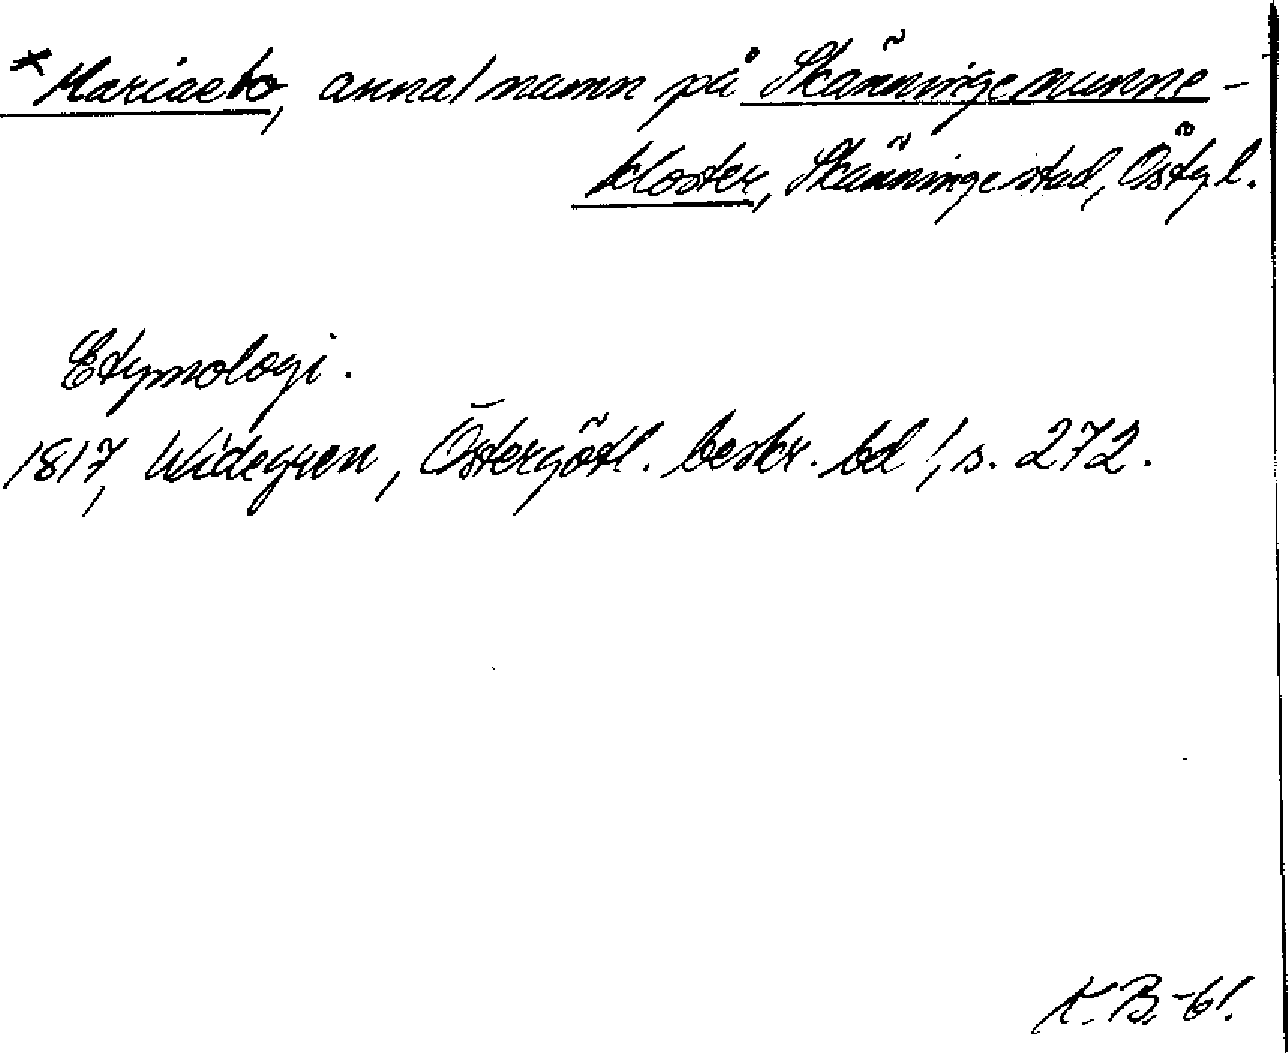 *Mariaebo, annat namn på Skänningenunne-
kloster, Skänninge stad, Östgl.
Etymologi.
1817, Widegren, Östergötl. beskr. bd 1, s. 272.
K.B.-61.